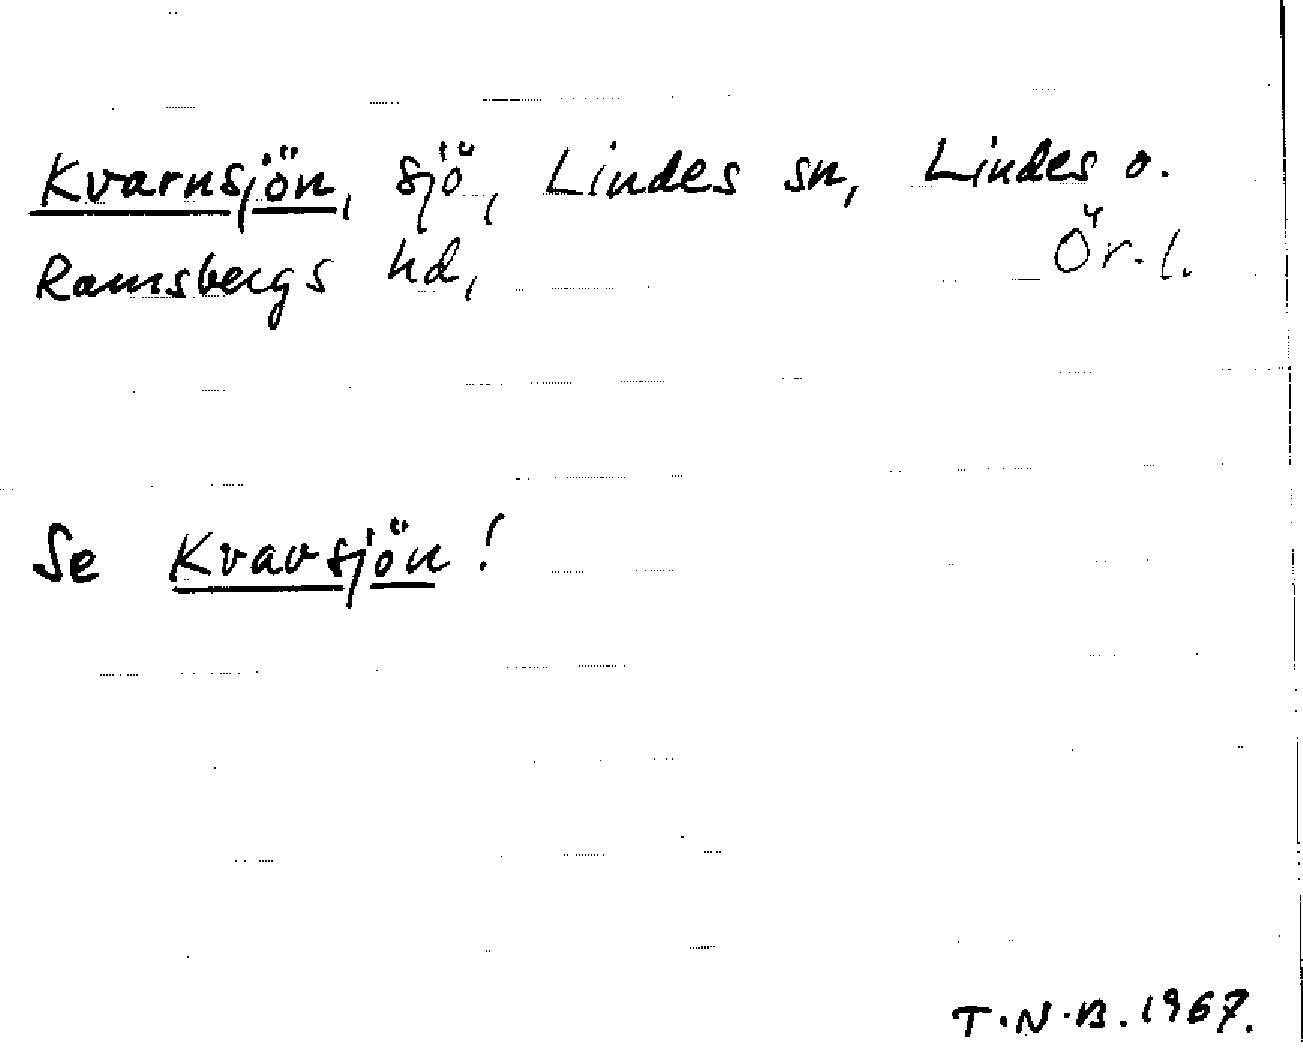 Kvarnsjön, sjö, Lindes sn, Lindes o.
Ramsbergs hd, Ör. l.
Se Kvavsjön!
T.N.B. 1967.